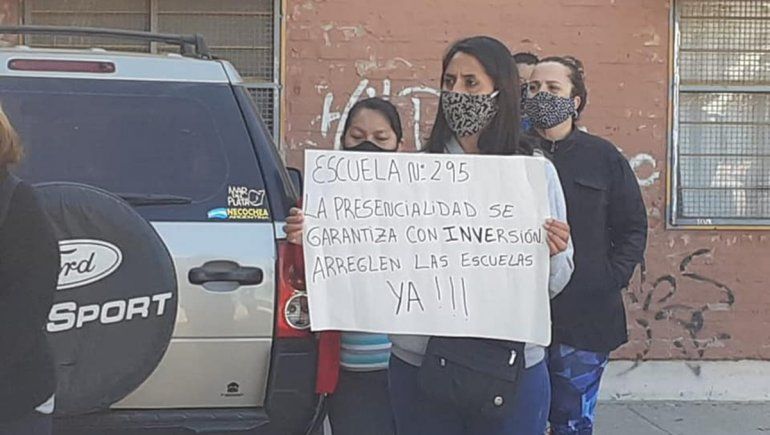 ESCUELA N: 295
LA PRESENCIALIDAD SE
GARANTIZA CON INVERSIÓN
ARREGLEN LAS ESCUELAS
YA!!!
MAR
DEL
PLATA
NECOCHEA
Ford
SPORT